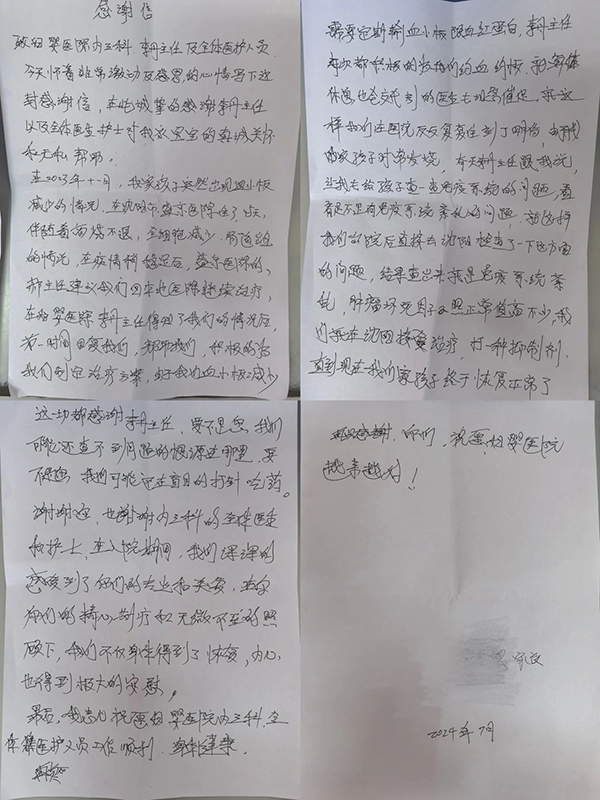 感谢信
致妇婴医院内三科.李丹主任及全体医护人员
今天怀着非常激动及感恩的心情写下这
封感谢信,在此诚挚的感谢李丹主任
以及全体医生护士对我家宝宝的真诚关怀
和无私帮助。
在2023年十一月,我家孩子突然出现血小板
减少的情况,在沈阳市盛京医院住了
伴随着高烧不退,细胞减少.
的情况,在病情稍稳定后,盛京医院的
主任建议我们回本地医院继续治疗,
在妇婴医院李丹主任得知了我们的情况后,
第一时间回复我们,帮助我们,积极的给
我们制定治疗方案,由于我们血小板减少
需要定期输血小板跟血红蛋白,李丹主任
每次都积极的教我们约血约板.
休息也会交代到的医生去现着催促.就这
样我们在医院反反复复住到了明,由于我
的家孩子时常发烧,有天李主任跟我说,
让我去给孩子查一查免疫系统的问题,看
看是不是有免疫系统紊乱的问题,就这样
我们出院后直接去沈阳检查了一下这方面
的问题,结果查出来就是免疫系统紊
乱,肿瘤坏死因子 照正常值高不少,我
们就在沈阳接受治疗,打一种抑制剂.
直到现在我们家孩子终于恢复正常了
这一切都感谢李丹主任,要不是您,我们
可能还查不到问题的根源在哪里,要
不是您 我们可能还在盲目的打针吃药。
谢谢您,也谢谢内三科的全体医生
和护士,在入院期间,我们深深的
感受到了你们的关心和关爱,在
你们的精心治疗和无微不至的照
顾下,我们不仅身体得到了恢复,内心
也得到极大的安慰,
最后,我衷心祝愿妇婴医院内三科,全
体医护人员工作顺利.身体健康.
再次感谢,你们,祝愿妇婴医院
越来越好!
家长
2024年7月